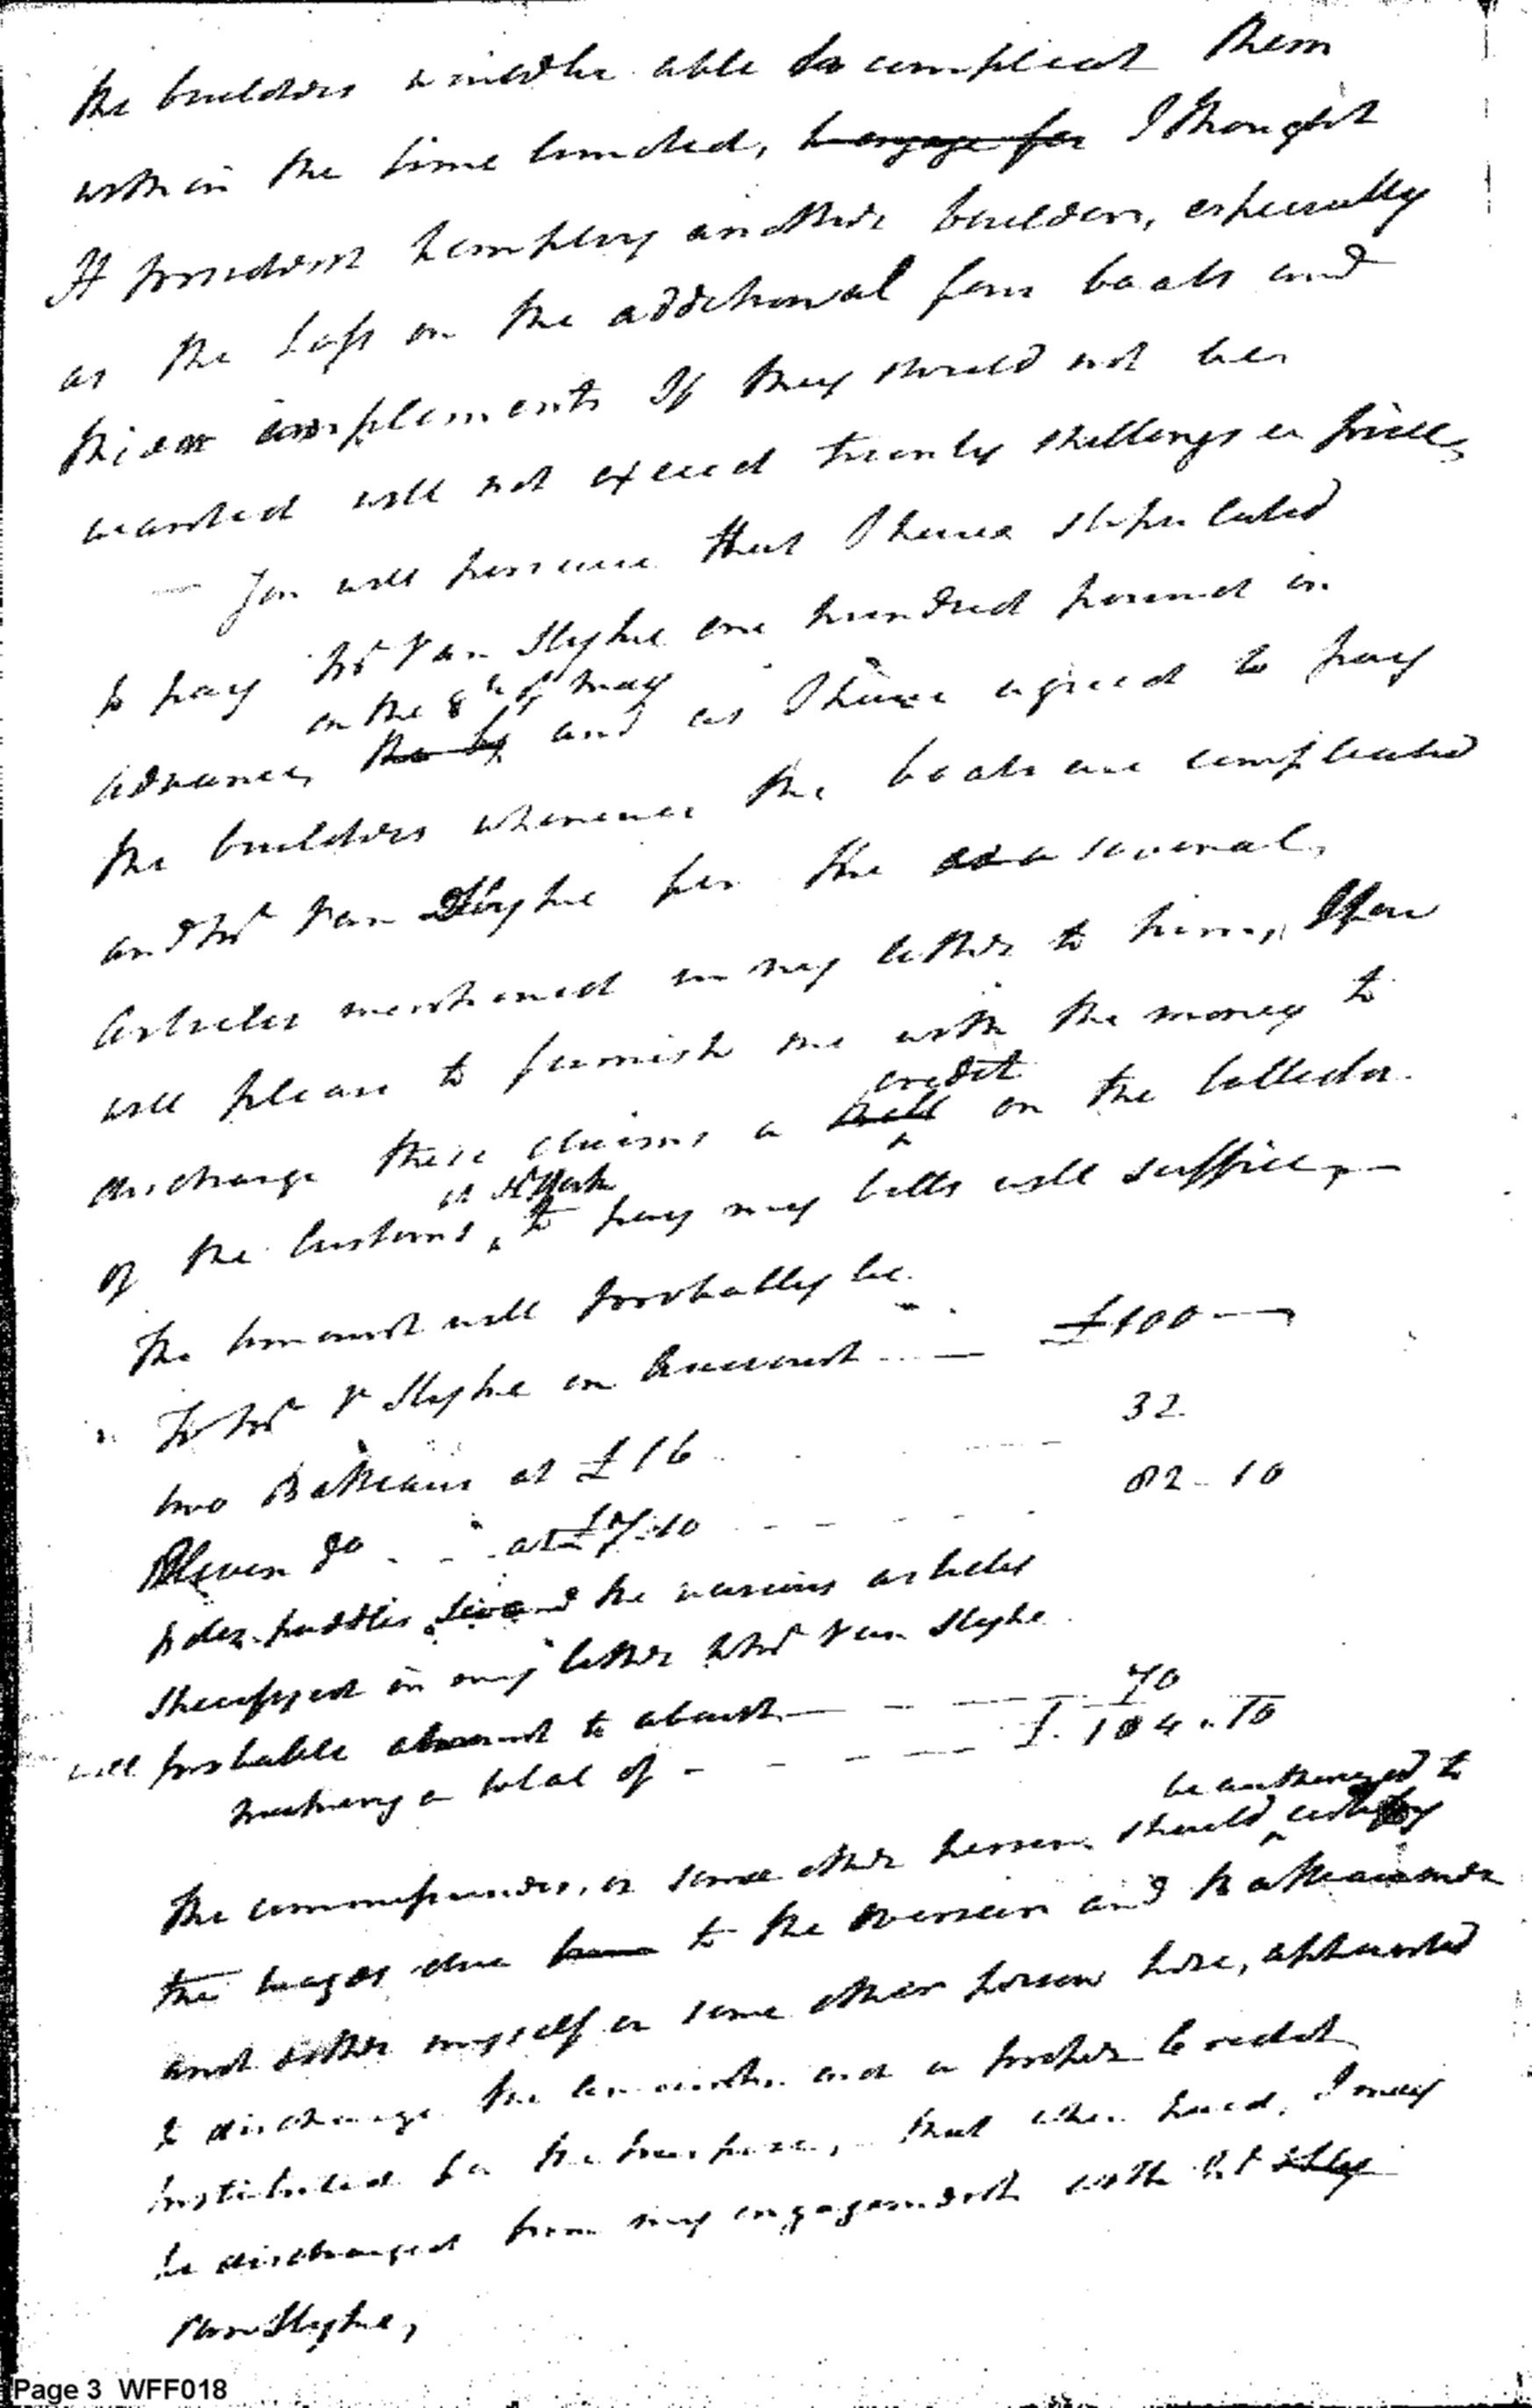 the builders would be able to compleat them
within the time limited, to engage for I thought
It prudent to employ another builder, especially
as the Loss on the additional four boats and
their implements If they should not be
wanted will not exceed twenty shillings a piece,
— You will perceive that I have stipulated
to pay Mr Van Slyke one hundred pound in
on the 8th of May
advance, the by and as I have agreed to pay
the builders whenever the boats are compleated
and Mr Van Slyke for the several,
Articles mentioned in my letter to him, If you
will please to furnish me with the money to
credit
discharge these claims a bill on the Collector
at N York
of the Customs, to pay my bills will suffice, —
The amount will probably be
To Mr V Slyke on Account — £100 —
two Batteaus at £16 32
Eleven Do at £7.10 82 - 10
poles paddles and the various articles
specified in my letter to Mr Van Slyke
will probable amount to about — 70
making a total of - £. 184 " 10
be authorized to
the commissioners, or some other person should certify
the wages due to the overseer and batteaumen
and either myself or some other person here, appointed
to discharge the amounts and a proper Credit
instituted for the purpose, that when paid, I may
be discharged from my engagements with Mr Slyk
Van Slyke,
Page 3 WFF018